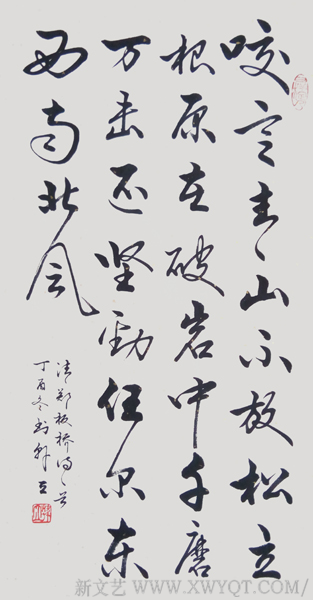 咬定青山不放松立
根原在破岩中千磨
万击还坚劲任尔东
西南北风
清郑板桥诗一首
丁酉冬
新文艺 WWW.XWYQT.COM/